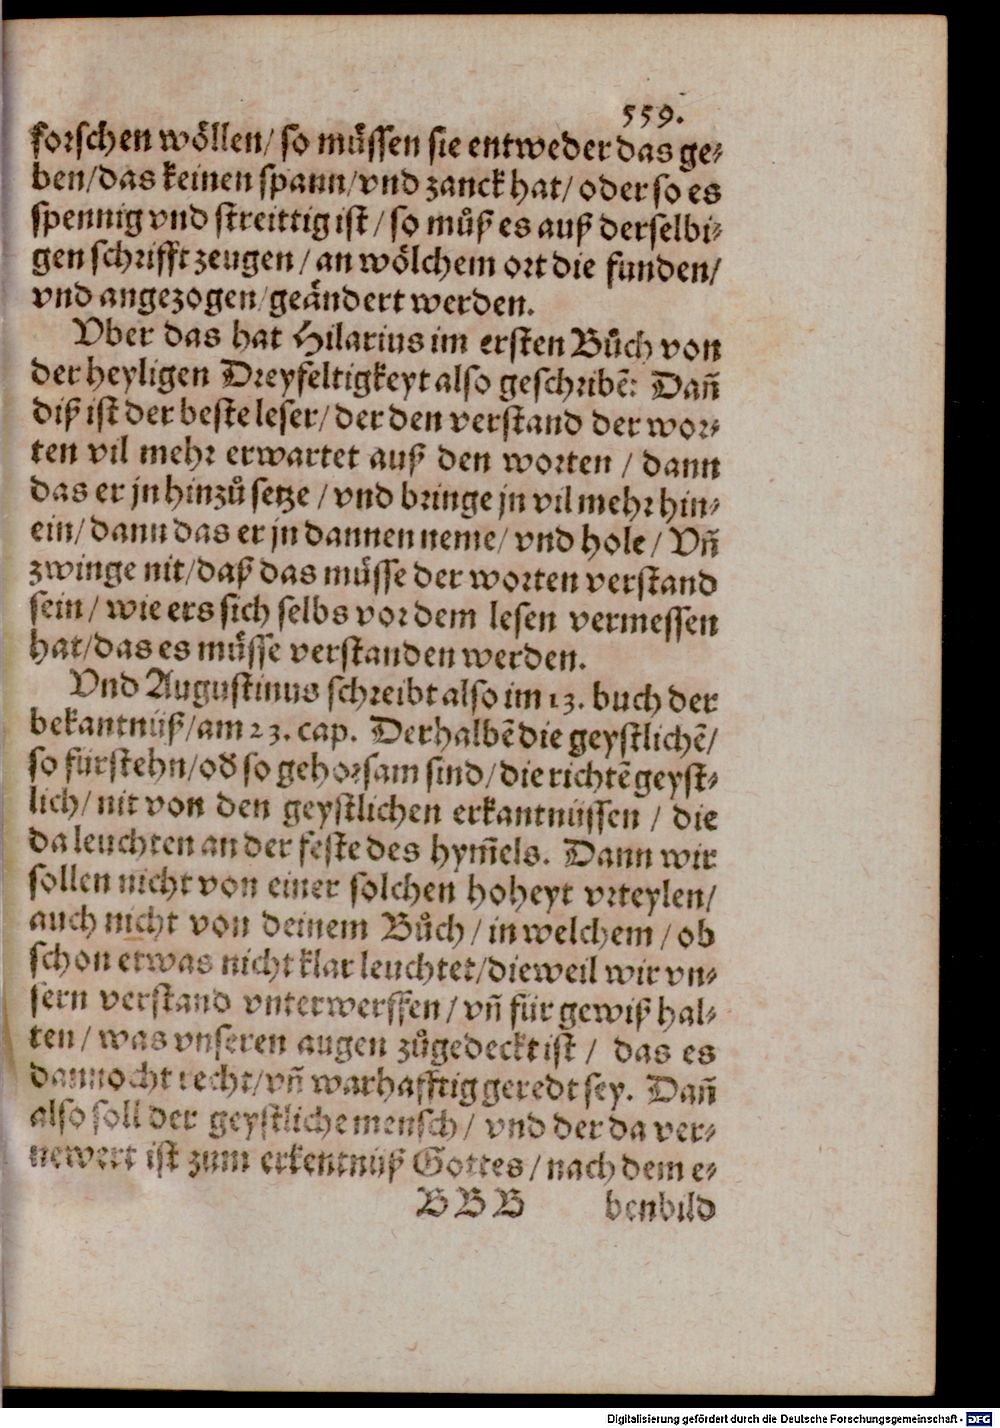 559.
forschen wöllen/ so müssen sie entweder das ge⸗
ben/das keinen spann/vnd zanck hat/ oder so es
spennig vnd streittig ist/ so můß es auß derselbi⸗
gen schrifft zeugen/ an wölchem ort die funden/
vnd angezogen/geändert werden.
Vber das hat Hilarius im ersten Bůch von
der heyligen Dreyfeltigkeyt also geschribē: Dañ
diß ist der beste leser/ der den verstand der wor⸗
ten vil mehr erwartet auß den worten/ dann
das er jn hinzů setze/ vnd bringe jn vil mehr hin⸗
ein/ dann das er jn dannen neme/ vnd hole/ Vñ
zwinge nit/daß das müsse der worten verstand
sein/ wie ers sich selbs vor dem lesen vermessen
hat/das es müsse verstanden werden.
Vnd Augustinus schreibt also im 13. buch der
bekantnüß/am 23. cap. Derhalbē die geystlichē/
so fürstehn/od̄ so gehorsam sind/die richtē geyst⸗
lich/ nit von den geystlichen erkantnüssen/ die
da leuchten an der feste des hym̄els. Dann wir
sollen nicht von einer solchen hoheyt vrteylen/
auch nicht von deinem Bůch/ in welchem/ ob
schon etwas nicht klar leuchtet/dieweil wir vn⸗
sern verstand vnterwerffen/ vñ für gewiß hal⸗
ten/ was vnseren augen zůgedeckt ist/ das es
dannocht recht/vñ warhafftig geredt sey. Dañ
also soll der geystliche mensch/ vnd der da ver⸗
newert ist zum erkentnüß Gottes/ nach dem e⸗
BBB benbild
Digitalisierung gefördert durch die Deutsche Forschungsgemeinschaft - DFG